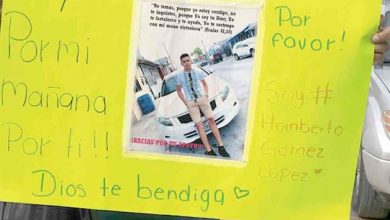 Por mi
Mañana
Por ti!!
"No temas, porque yo estoy contigo, no
te inquietes, porque Yo soy tu Dios; Yo
te fortalezco y te ayudo, Yo te sostengo
con mi mano victoriosa"
(Isaías 41,10)
GRACIAS POR TU APOYO!!!
Por
favor!
Soy #
Homberto
Gomez
Lopez.♡
Dios te bendiga ♡